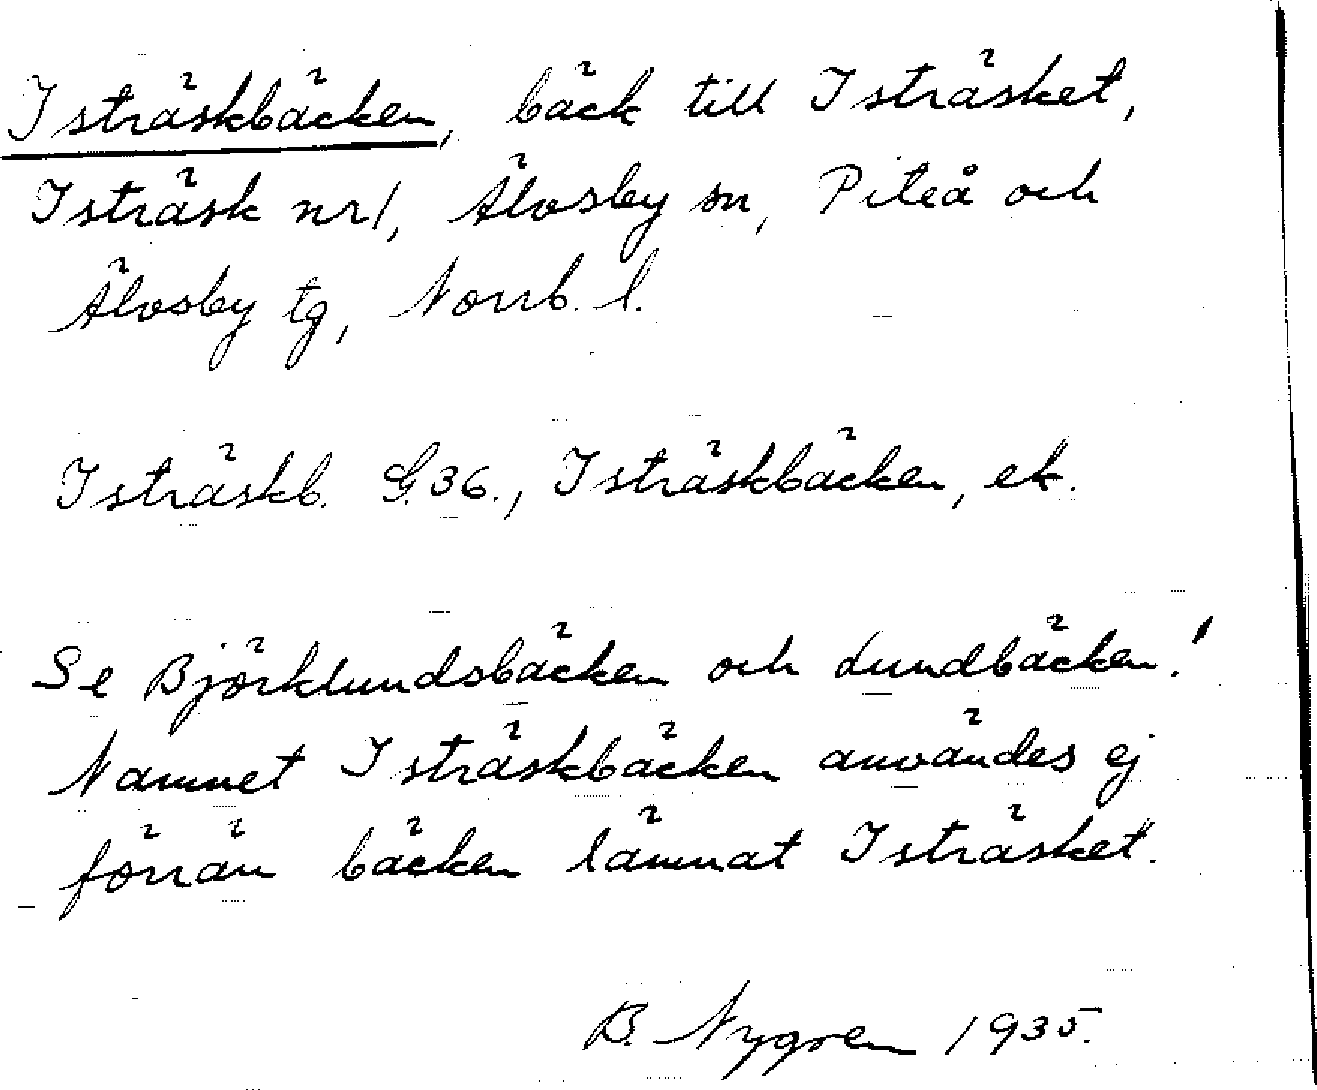 Isträskbäcken, bäck till Isträsket,
Isträsk nr 1, Älvsby sn, Piteå och
Älvsby tg, Norrb. l.
Isträskb. G.36., Isträskbäcken, ek.
Se Björklundsbäcken och Lundbäcken!
Namnet Isträskbäcken användes ej
förrän bäcken lämnat Isträsket.
B. Nygren 1935.